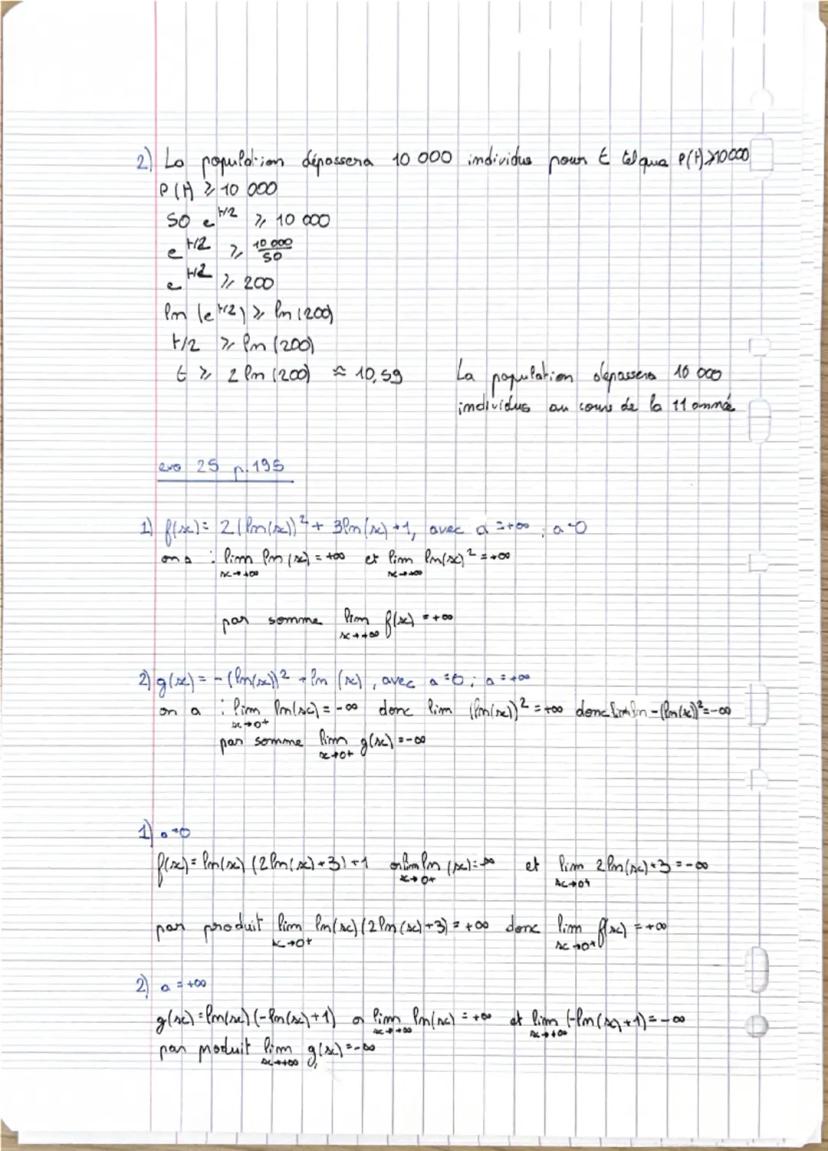 2) La population dépassera 10 000 individus pour t tel que P(t) ≥ 10000
P(t) ≥ 10 000
50 e^{t/2} ≥ 10 000
e^{t/2} ≥ 10 000/50
e^{t/2} ≥ 200
ln (e^{t/2}) ≥ ln(200)
t/2 ≥ ln(200)
t ≥ 2 ln(200) ≈ 10,59 La population dépassera 10 000
individus au cours de la 11 année
exo 25 p.195
1) f(x) = 2(ln(x))² + 3ln(x) + 1, avec a = +∞ ; a = 0
on a : lim_{x→+∞} ln(x) = +∞ et lim_{x→+∞} ln(x)² = +∞
par somme lim_{x→+∞} f(x) = +∞
2) g(x) = -(ln(x))² + ln (x), avec a = 0 ; a = +∞
on a : lim_{x→0+} ln(x) = -∞ donc lim (ln(x))² = +∞ donc -(ln(x))² = -∞
par somme lim_{x→0+} g(x) = -∞
1) a = 0
f(x) = ln(x) (2ln(x)+3) + 1 lim_{x→0+} ln (x) = -∞ et lim_{x→0+} 2ln(x)+3 = -∞
par produit lim_{x→0+} ln(x)(2ln(x)+3) = +∞ donc lim_{x→0+} f(x) = +∞
2) a = +∞
g(x) = ln(x)(-ln(x)+1) or lim_{x→+∞} ln(x) = +∞ et lim_{x→+∞} (-ln(x)+1) = -∞
par produit lim_{x→+∞} g(x) = -∞